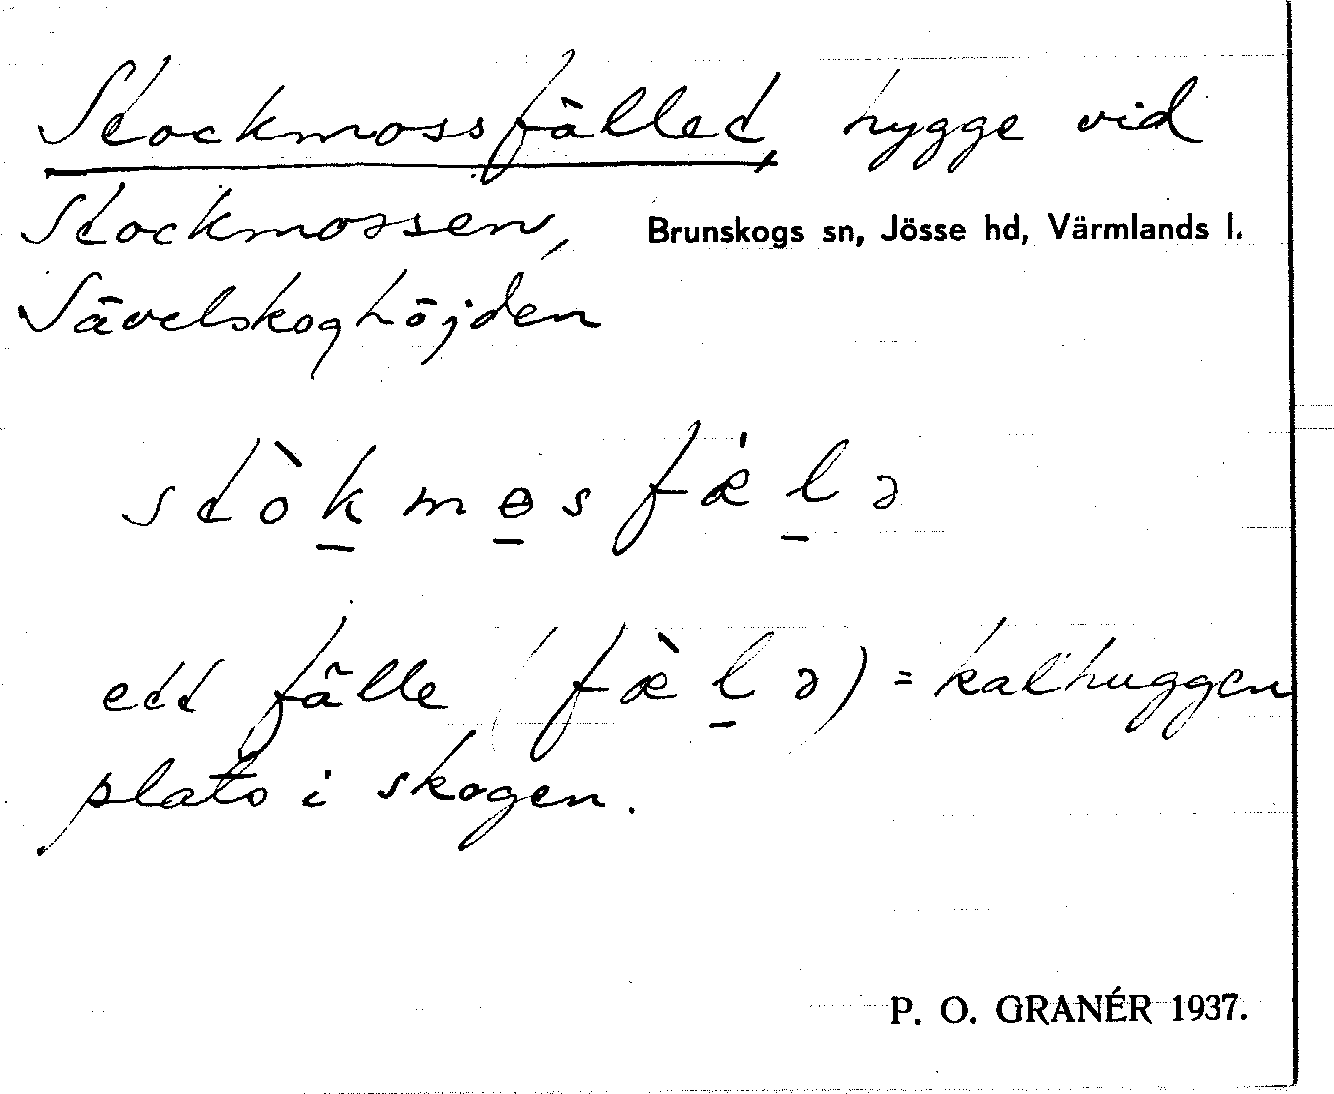 Stockmossfället, hygge vid
Stockmossen, Brunskogs sn, Jösse hd, Värmlands l.
Sävelskoghöjden
stòkmɵsfæ̀lə
ett fälle (fæ̀lə) = kalhuggen
plats i skogen.
P. O. GRANÉR 1937.